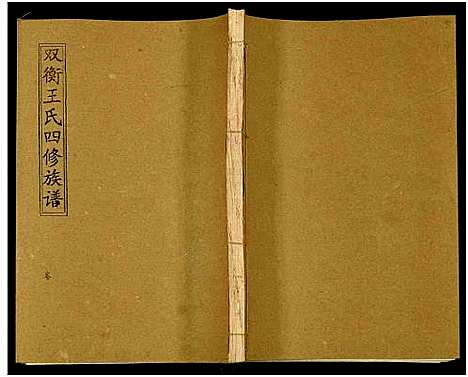 双衡王氏四修族谱
卷